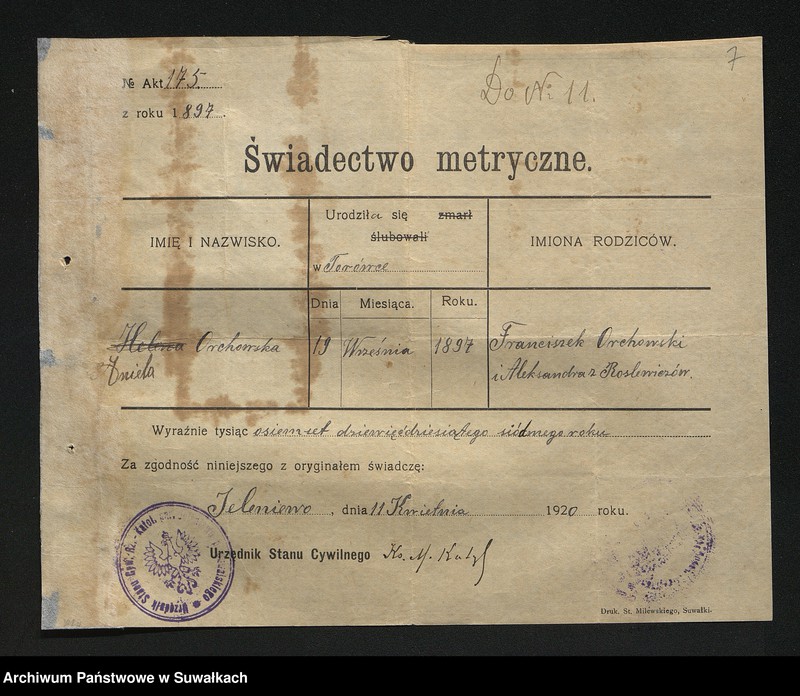 7
№ Akt 175.
Do № 11.
z roku 1897.
Świadectwo metryczne.
IMIĘ I NAZWISKO.
Urodziła się zmarł
ślubowali
w
IMIONA RODZICÓW.
Dnia Miesiąca. Roku.
Helena Orchowska
Aniela
19 Września 1897
Franciszek Orchowski
i Aleksandra z Roslewiczów.
Wyraźnie tysiąc osiemset dziewięćdziesiątego siódmego roku
Za zgodność niniejszego z oryginałem świadczę:
Jeleniewo, dnia 11 Kwietnia 1920 roku.
Urzędnik Stanu Cywilnego Ks. M.
Urzędnik Stanu Cyw. Rz.-Katol.
Druk. St. Milewskiego, Suwałki.
Archiwum Państwowe w Suwałkach